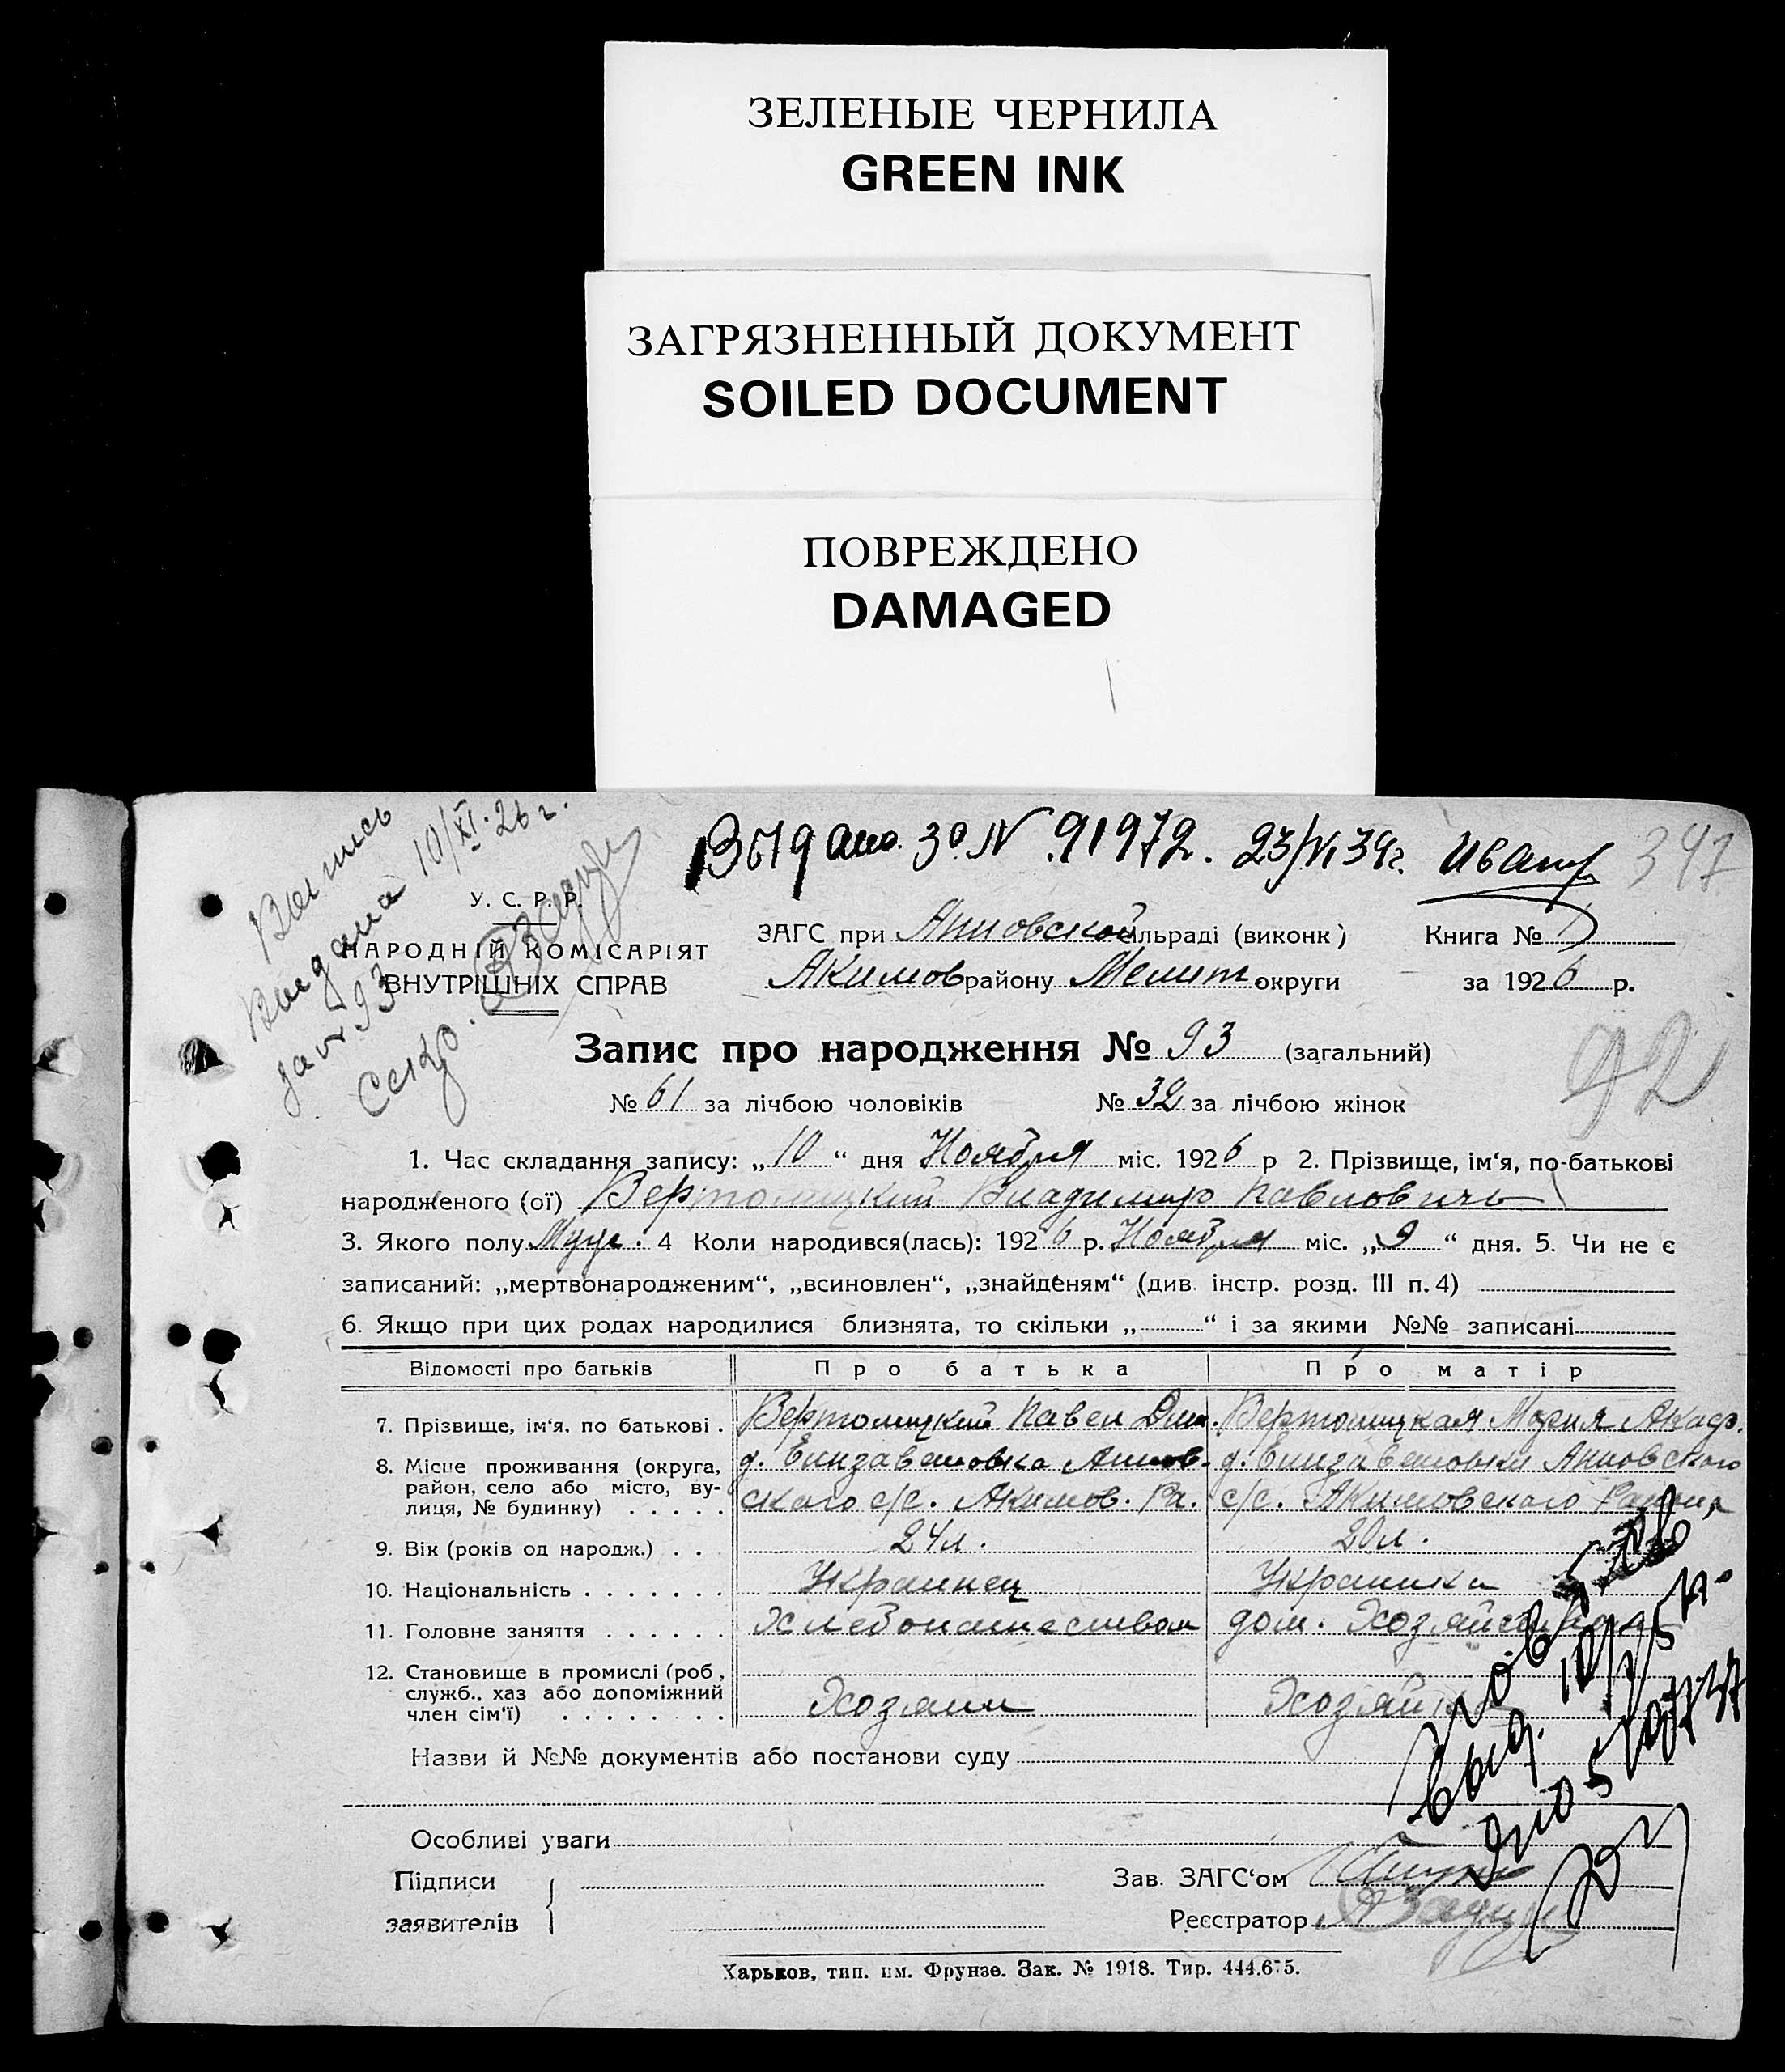 ЗЕЛЕНЫЕ ЧЕРНИЛА
GREEN INK
ЗАГРЯЗНЕННЫЙ ДОКУМЕНТ
SOILED DOCUMENT
ПОВРЕЖДЕНО
DAMAGED
Выдано. За № 91972. 23/VI 39г. 347
Выпись
Выдана 10/XI.26 г.
за № 93
Секр.
У. С. Р. Р.
НАРОДНІЙ КОМІСАРІЯТ
ВНУТРІШНІХ СПРАВ
ЗАГС при Анновской сільраді (виконк) Книга № 1
Акимов району Мелит округи за 1926 р.
Запис про народження № 93 (загальний)
92
№ 61 за лічбою чоловіків № 32 за лічбою жінок
1. Час складання запису: „10“ дня Ноября міс. 1926 р 2. Прізвище, ім‘я, по-батькові
народженого (ої) Вертолицкий Владимир Павлович
3. Якого полу Муж. 4 Коли народився(лась): 1926 р. Ноября міс. „9“ дня. 5. Чи не є
записаний: „мертвонародженим“, „всиновлен“, „знайденям“ (див. інстр. розд. III п. 4)
6. Якщо при цих родах народилися близнята, то скільки „ “ і за якими №№ записані
Відомості про батьків Про батька Про матір
7. Прізвище, ім‘я, по батькові . Вертолицкий Павел Дми. Вертолицкая Мария
8. Місце проживання (округа, район, село або місто, вулиця, № будинку) . . . . .
д. Елизаветовка Анновского с/с. Акимов. Ра.
д. Елизаветовки Анновского с/с. Акимовского Района
9. Вік (років од народж.) . . 24 л. 20 л.
10. Національність . . . . . . . Украинец Украинка
11. Головне заняття . . . . . . Хлебопашеством дом. Хозяйства
12. Становище в промислі (роб., служб., хаз або допоміжний член сім‘ї) . . . . . . . .
Хозяин Хозяйка
Назви й №№ документів або постанови суду
Особливі уваги
Підписи
заявителів
Зав. ЗАГС‘ом
Реєстратор
выд.
Харьков, тип. им. Фрунзе. Зак. № 1918. Тир. 444.675.